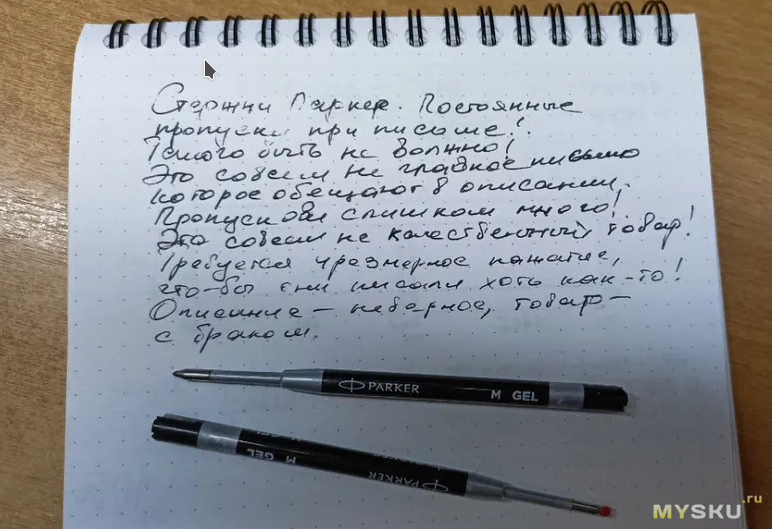 Стержни Паркер. Постоянные
пропуски при письме!
Такого быть не должно!
Это совсем не гладкое письмо
которое обещают в описании.
Пропусков слишком много!
Это совсем не качественный товар!
Требуется чрезмерное нажатие,
что-бы они писали хоть как-то!
Описание – неверное, товар –
с браком.
PARKER M GEL
PARKER M GEL
MYSKU.ru